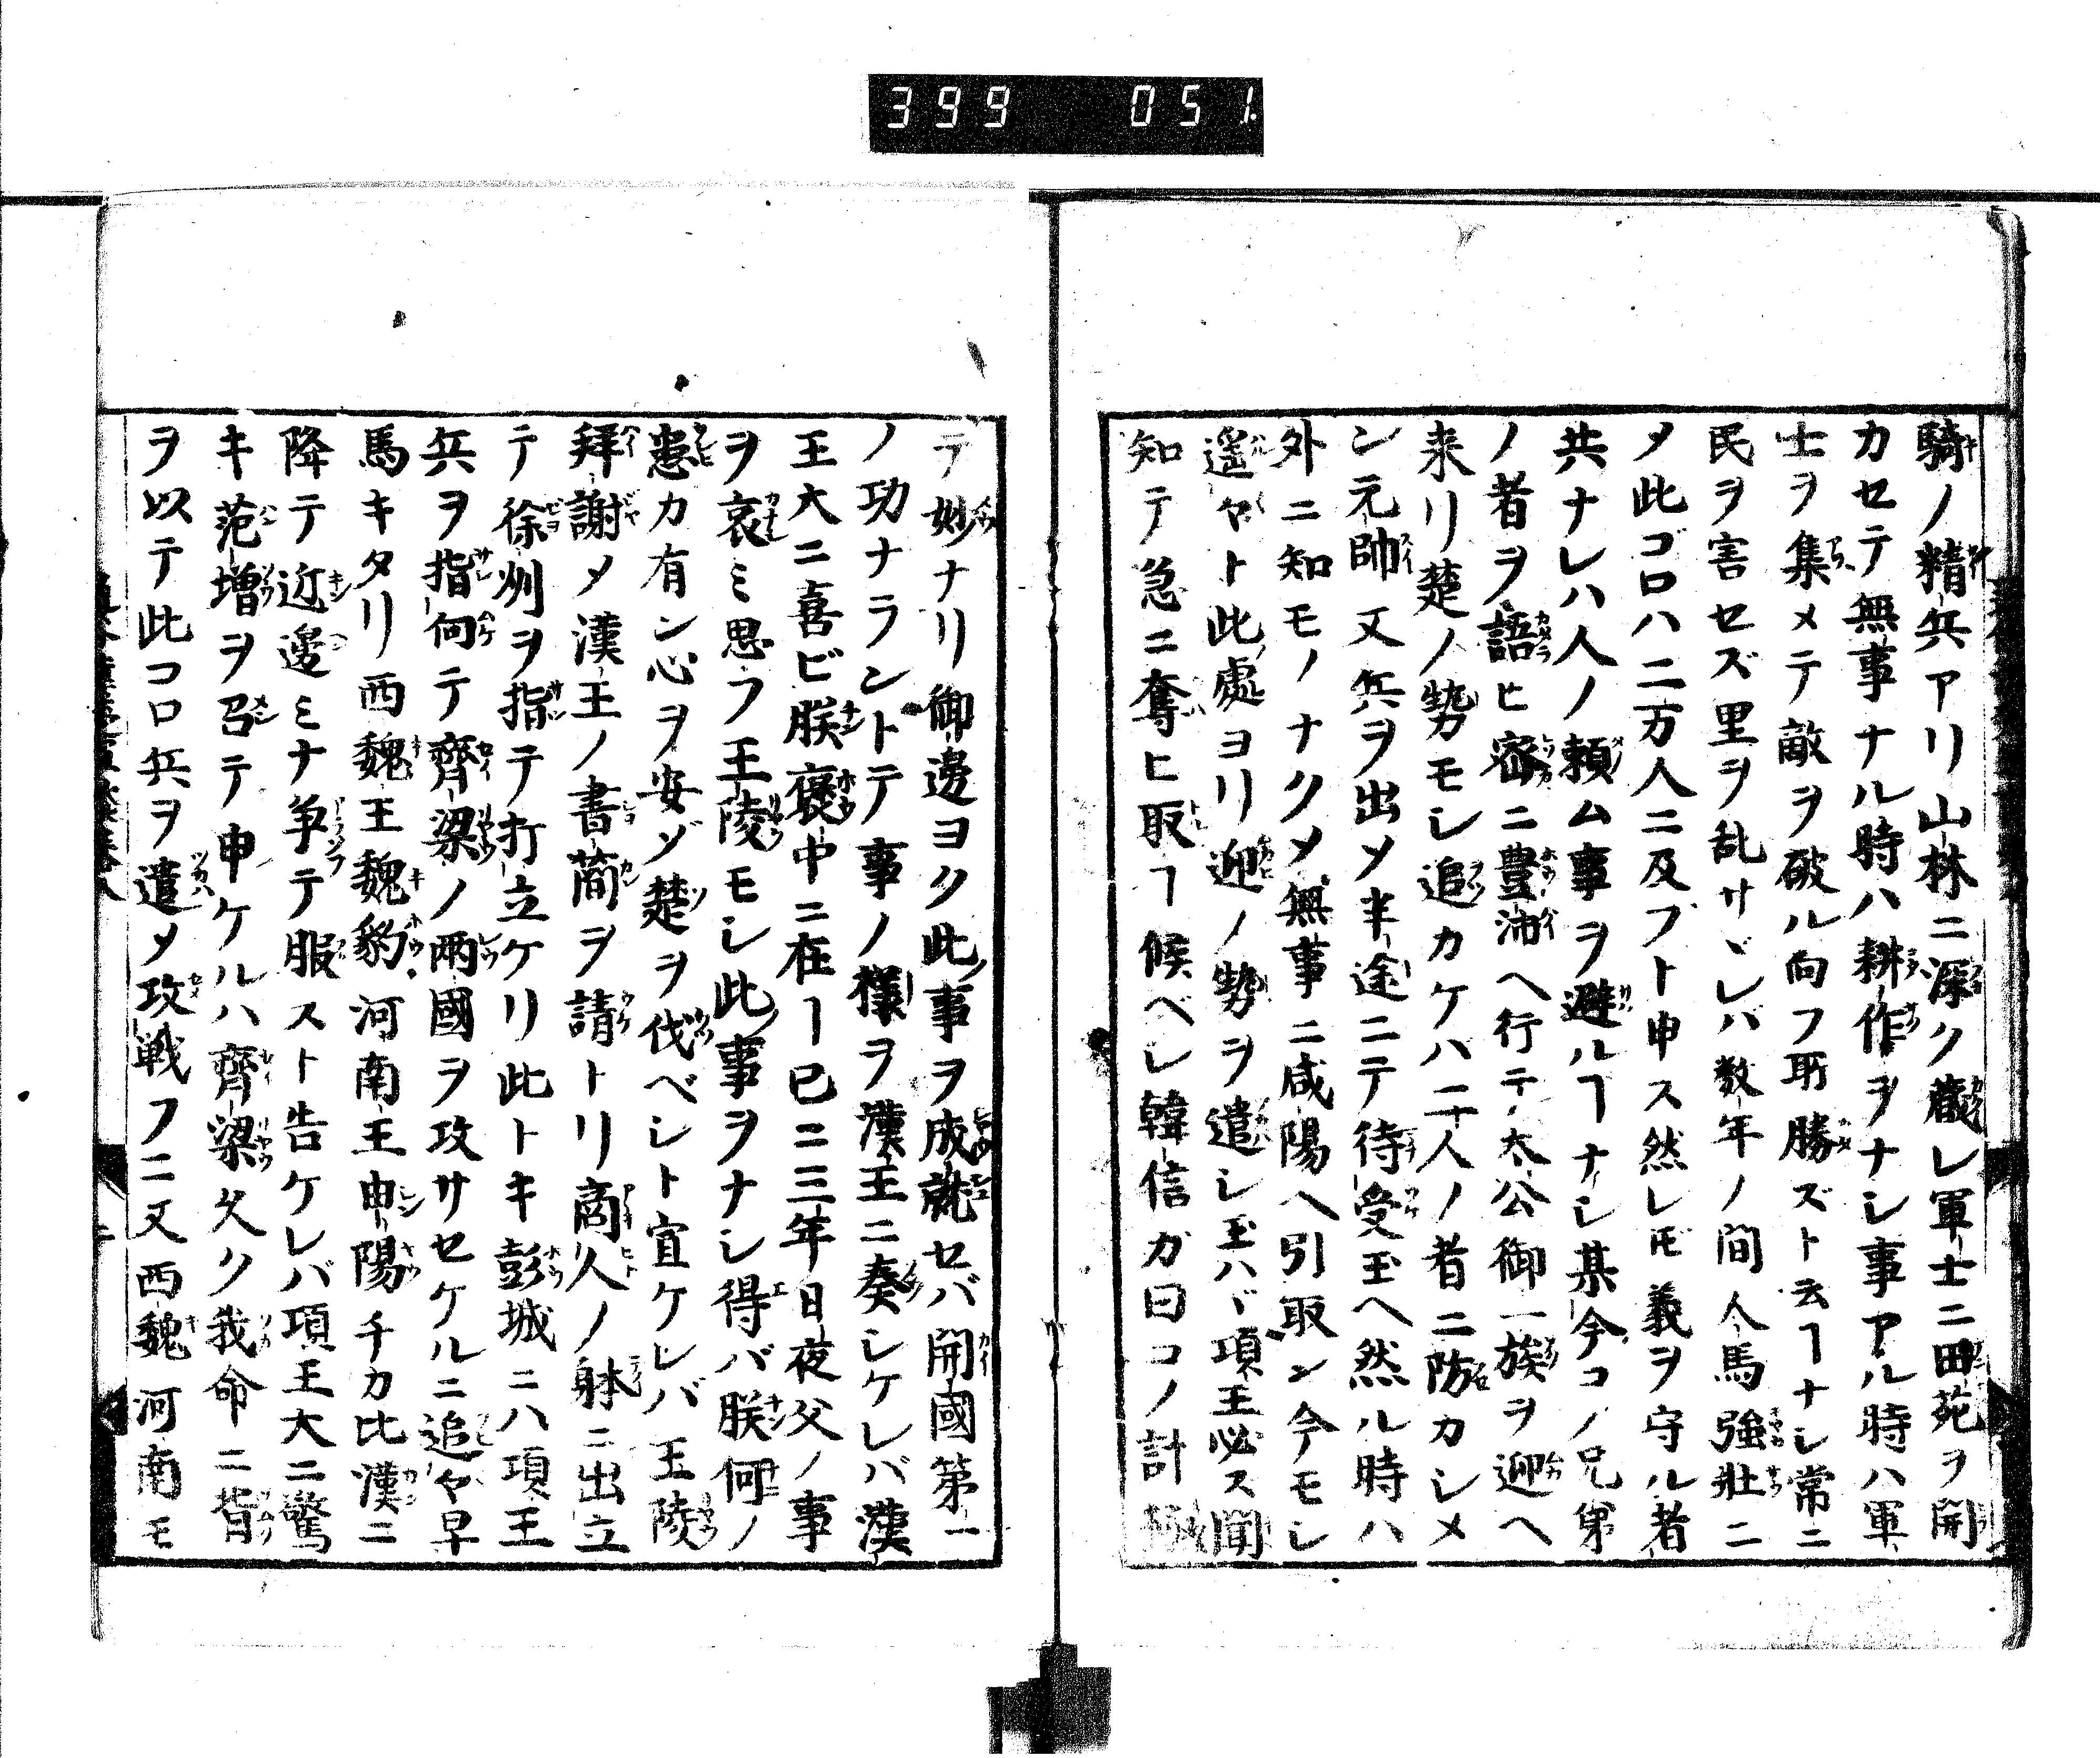 399 051
騎ノ精兵アリ山林ニ深ク蔵レ軍士ニ田苑ヲ開
カセテ無事ナル時ハ耕作ヲナシ事アル時ハ軍
士ヲ集メテ敵ヲ破ル向フ所勝ズト云ヿナシ常ニ
民ヲ害セズ里ヲ乱サヾレバ数年ノ間人馬強壮ニ
メ此ゴロハ二万人ニ及ブト申ス然レ𪜈義ヲ守ル者
共ナレハ人ノ頼ム事ヲ避ルヿナシ某今コノ兄弟
ノ者ヲ語ヒ密ニ豊沛ヘ行テ太公御一族ヲ迎ヘ
来リ楚ノ勢モシ追カケハ二千人ノ者ニ防カシメ
ン元帥又兵ヲ出メ半途ニテ待受玉ヘ然ル時ハ
外ニ知モノナクメ無事ニ咸陽ヘ引取ン今モシ
遥々ト此處ヨリ迎ノ勢ヲ遣シ玉ハヾ項王必ス聞
知テ急ニ奪ヒ取ヿ候ベシ韓信ガ曰コノ計極
テ妙ナリ御邊ヨク此事ヲ成就セバ開國第一
ノ功ナラントテ事ノ様ヲ漢王ニ奏シケレバ漢
王大ニ喜ビ朕褒中ニ在ヿ已ニ三年日夜父ノ事
ヲ哀ミ思フ王陵モシ此事ヲナシ得バ朕何ノ
患カ有ン心ヲ安ゾ楚ヲ伐ベシト宣ケレバ王陵
拜謝メ漢王ノ書簡ヲ請トリ商人ノ躰ニ出立
テ徐州ヲ指テ打立ケリ此トキ彭城ニハ項王
兵ヲ指向テ齊梁ノ兩國ヲ攻サセケルニ追々早
馬キタリ西魏王魏豹河南王申陽チカ比漢ニ
降テ近邊ミナ争テ服スト告ケレバ項王大ニ驚
キ范増ヲ召テ申ケルハ齊梁久ク我命ニ背
ヲ以テ此コロ兵ヲ遣メ攻戦フニ又西魏河南モ